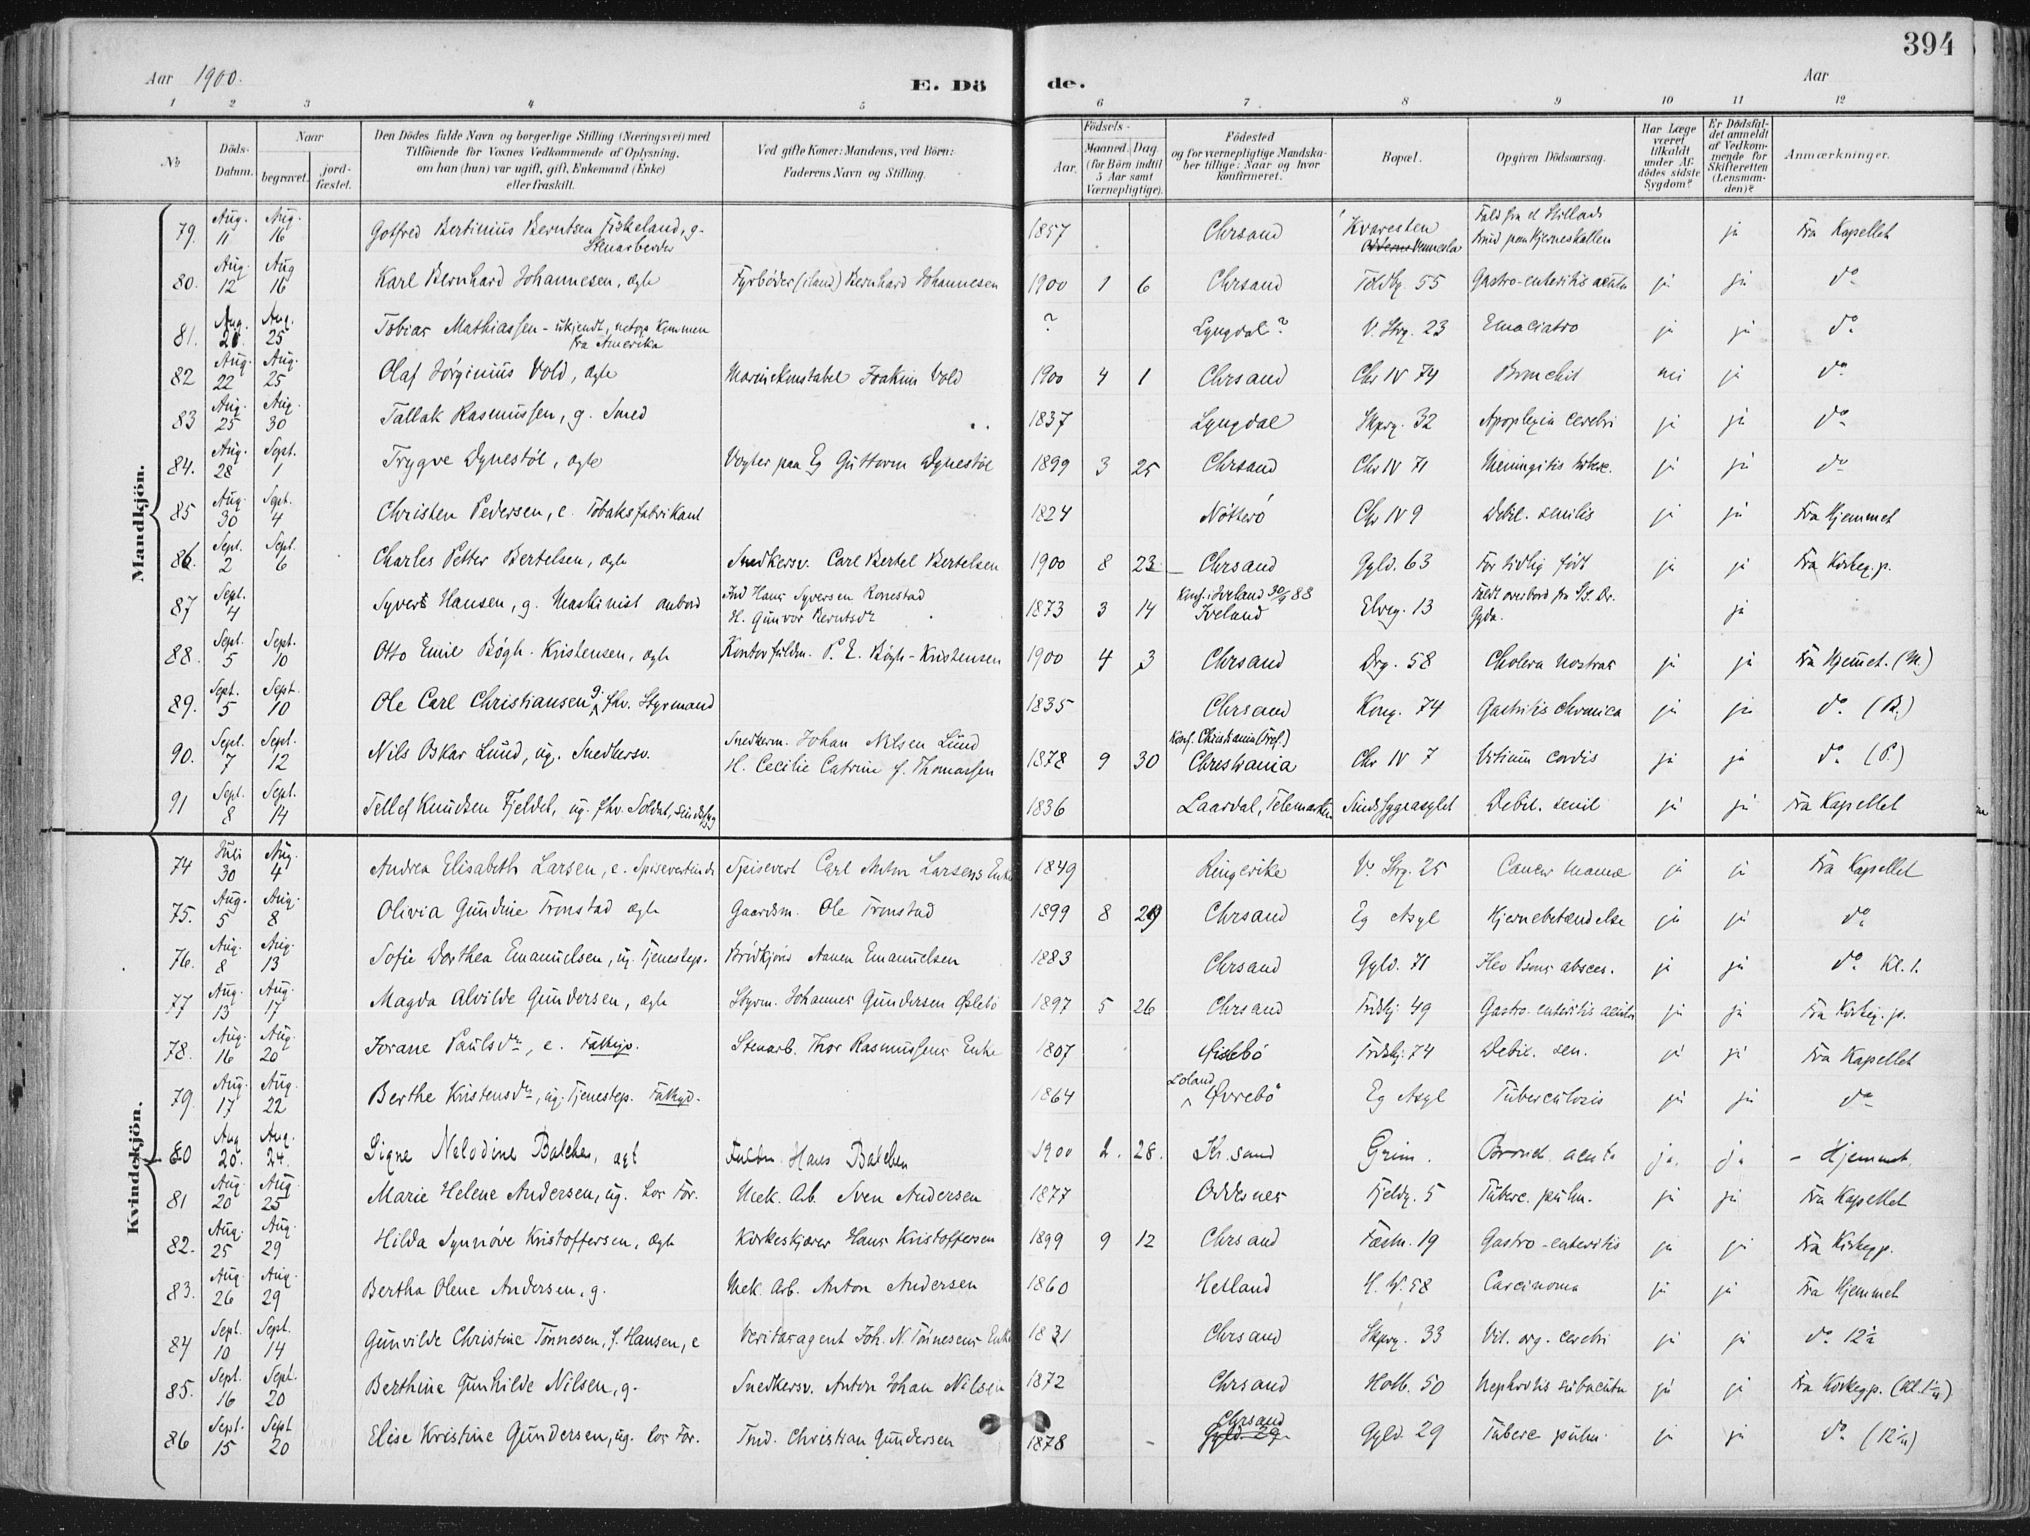 394
Aar 1900.
E. Dö de.
Aar
1 2 3 4 5 6 7 8 9 10 11 12
No
Döds-Datum.
Naar
begravet.
jord-fæstet.
Den Dödes fulde Navn og borgerlige Stilling (Næringsvei) med
Tilföiende for Voxnes Vedkommende af Oplysning,
om han (hun) var ugift, gift, Enkemand (Enke)
eller fraskilt.
Ved gifte Koner: Mandens, ved Börn:
Faderens Navn og Stilling.
Födsels-
Aar. Maaned. Dag.
(for Börn indtil 5 Aar samt Værnepligtige).
Födested
og for værnepligtige Mandska-
ber tillige: Naar og hvor
konfirmeret.
Bopæl.
Opgiven Dödsaarsag.
Har Læge været tilkaldt under Af-dödes sidste Sygdom?
Er Dödsfal-det anmeldt af Vedkom-mende for Skifteretten (Lensman-den)?
Anmærkninger.
Mandkjön.
79. Aug. 11 Aug. 16 Gotfred Bertinius Berntsen Fiskeland, g. Stenarbeider 1857 Chrsand Kvaresten Vennesla Fald fra et Stillads ja Fra Kapellet
80. Aug. 12 Aug 16 Karl Bernhard Johannesen, ægte Fyrbøder (iland) Bernhard Johannesen 1900 1 6 Chrsand Toldbg. 55 Gastro-enteritis acuta ja ja do
81. Aug. 21 Aug. 25 Tobias Mathiassen - ukjendt, netop kommen fra Amerika ? Lyngdal? V. Strg. 23 Emaciatio ja ja do
82 Aug. 22 Aug. 25 Olaf Jörginius Vold, ægte Marinekonstabel Joakim Vold 1900 4 1 Chrsand Chr IV 74 Bronchit nei ja do
83 Aug. 25 Aug. 30 Tallak Rasmussen, g. Smed 1837 Lyngdal Skprg. 32 Apoplexia cerebri ja ja do
84. Aug. 28 Sept. 1 Trygve Dynestöl, ægte Vogter paa Eg Guttorm Dynestöl 1899 3 25 Chrsand Chr IV 71 Meningitis tuberc. ja ja do
85 Aug. 30 Sept. 4 Christen Pedersen, e. Tobaksfabrikant 1824 Nötterö Chr IV 9 Debil. senilis ja ja Fra Hjemmet
86. Sept. 2 Sept. 6 Charles Petter Bertelsen, ægte Snedkersv. Carl Bertel Bertelsen 1900 8 23 Chrsand Gyld. 63 For tidlig født ja ja Fra Kirkeg. p.
87 Sept. 4 Syvert Hansen, g. Maskinist ombord Ind Hans Syversen Ronestad H. Gunvor Berntsdr 1873 3 14 Konf. Iveland 30/9 88 Iveland Elveg. 13 Faldt overbord fra SS. Dr. Gyda. ja
88. Sept. 5 Sept. 10 Otto Emil Bögh-Kristensen, ægte Kontorfuldm. P. E. Bögh-Kristensen 1900 4 3 Chrsand Drg. 58 Cholera nostras ja ja Fra Hjemmet. (M.)
89. Sept. 5 Sept. 10 Ole Carl Christiansen g. fhv. Styrmand 1835 Chrsand Kong. 74 Gastritis chronica ja ja do (B.)
90. Sept. 7 Sept. 12 Nils Oskar Lund, ug. Snedkersv. Snedkerm. Johan Nilsen Lund H. Cecilie Catrine f. Thomassen 1878 9 30 Christiania Chr IV 7 Vitium cordis ja ja do (P.)
91 Sept. 8 Sept. 14 Tellef Knudsen Fjeldet, ug. fhv. Soldat, sindssyg 1836 Laardal, Telemarken Sindssygeasylet Debil. senil ja ja Fra Kapellet
Kvindekjön.
74 Juli 30 Aug. 4 Andrea Elisabeth Larsen, e. Spisevertinde Spisevert Carl Anton Larsens Enke 1849 Ringerike V. Strg. 25 Cancer mamæ ja ja Fra Kapellet
75. Aug. 5 Aug. 8 Olivia Gundine Tronstad ægte Gaardsm. Ole Tronstad 1899 8 29 Chrsand Eg Asyl Hjernebetændelse ja ja do
76. Aug. 8 Aug. 13 Sofie Dorthea Emanuelsen, ug. Tjenestep. Emanuelsen 1883 Chrsand Gyld. 71 Ileo Psoas absces. ja ja do Kl. 1.
77 Aug. 13 Aug. 17 Magda Alvilde Gundersen, ægte Styrm. Johannes Gundersen Øslebö 1897 5 26 Chrsand Tordskj. 49 Gastro-enteritis acuta ja ja Fra Kirkeg. p.
78. Aug. 16 Aug. 20 Jorane Paulsdr, e. Fattigv. Stenarb. Thor Rasmussens Enke 1807 Øislebö Tordskj. 74 Debil. sen. ja ja Fra Kapellet
79. Aug. 17 Aug. 22 Berthe Kristensdr, ug. Tjenestep. Fattigv. 1864 Loland Øvrebö Eg Asyl Tuberculosis ja ja do
80 Aug 20. Aug. 24. Signe Nelodine Balchen, ægt Hans Balchen 1900 2. 28. Kr.sand Grim. Bronch. acuta ja. ja - Hjemmet.
81 Aug 20 Aug 25 Marie Helene Andersen, ug. hos For. Mek. Arb. Sven Andersen 1877 Oddernes Fjeldg. 5 Tuberc. pulm. ja ja Fra Kapellet
82. Aug. 25 Aug. 29 Hilda Synnöve Kristoffersen, ægte Korkeskjærer Hans Kristoffersen 1899 9 12 Chrsand Fæstn. 19 Gastro-enteritis ja ja Fra Kirkegp.
83. Aug. 26 Aug. 29 Bertha Olene Andersen, g. Mek. Arb. Anton Andersen 1860 Hetland H. W. 58 Carcinoma ja ja Fra Hjemmet
84 Sept. 10 Sept. 14 Gunvilde Christine Tönnesen, f. Hansen, e Veritasagent Joh. N. Tönnesens Enke 1831 Chrsand Skprg. 33 Vit. org. cerebri ja ja do 12½
85. Sept. 16 Sept. 20 Berthine Gunhilde Nilsen, g. Snedkersv. Anton Johan Nilsen 1872 Chrsand Holb. 50 Nephritis subacuta ja ja Fra Kirkegp.
86 Sept. 15 Sept 20 Elise Kristine Gundersen, ug. hos For. Tmd. Christian Gundersen 1878 Chrsand Gyld. 29 Gyld. 29 Tuberc pulm. ja ja do